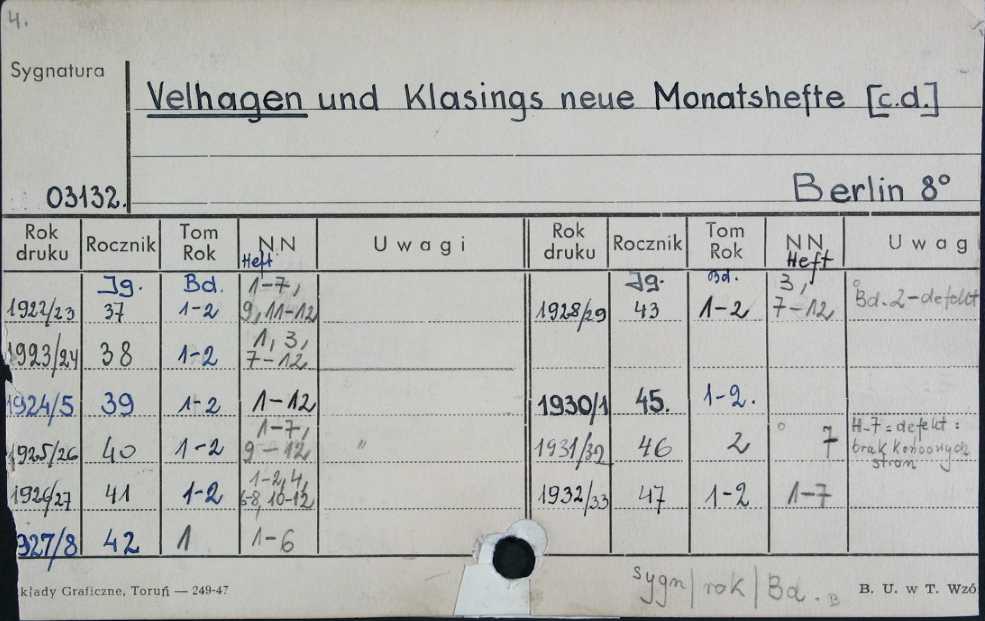 4.
Sygnatura
Velhagen und Klasings neue Monatshefte [c.d.]
03132.
Berlin 8°
Rok druku Rocznik Tom Rok NN Heft Uwagi Rok druku Rocznik Tom Rok NN Heft Uwag
Jg. Bd. 1-7, Jg. Bd. 3,
1922/23 37 1-2 9, 11-12 1928/29 43 1-2 7-12 Bd. 2-defekt
1923/24 38 1-2 1, 3, 7-12
1924/5 39 1-2 1-12 1930/1 45. 1-2.
1925/26 40 1-2 1-7, 9-12 " 1931/32 46 2 7 H-7=defekt: brak końcowych stron
1926/27 41 1-2 1-2,4, 6-8, 10-12 1932/33 47 1-2 1-7
927/8 42 1 1-6
kłady Graficzne, Toruń — 249-47
sygn/rok/Bd. B
B. U. w T. Wzó